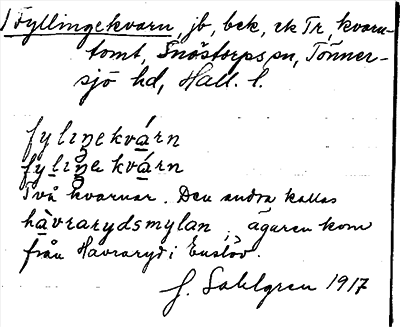 1 Fyllingekvarn, jb, bek, ek Tr, kvarn-
tomt, Snöstorps sn, Tönner-
sjö hd, Hall. l.
fyliŋekvárn
fyliŋekvárn
Två kvarnar. Den andra kallas
hàvrarydsmylan, ägaren kom
från Havraryd i Enslöv.
J. Sahlgren 1917